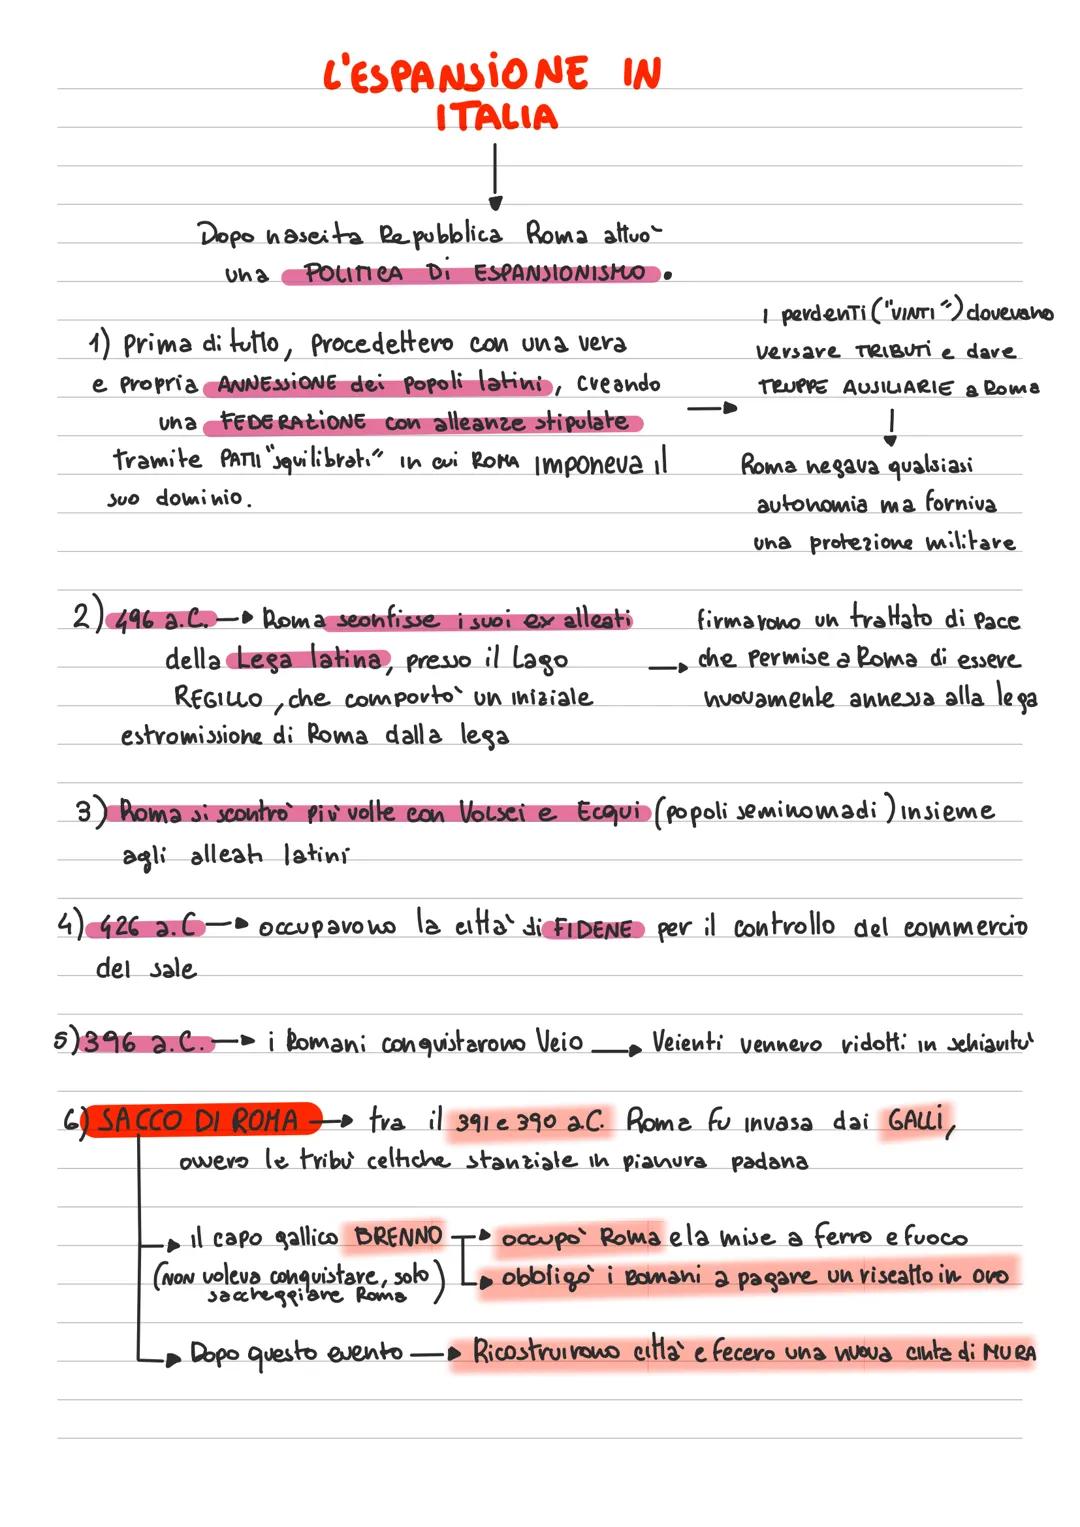 L'ESPANSIONE IN
ITALIA
Dopo nascita Repubblica Roma attuo'
una POLITICA Di ESPANSIONISMO.
1) Prima di tutto, Procedettero con una vera
e propria ANNESSIONE dei popoli latini, creando
una FEDERAZIONE con alleanze stipulate
tramite PATTI "squilibrati" in cui ROMA IMPONEVA il
suo dominio.
I perdenTi ("VINTI") dovevano
versare TRIBUTi e dare
TRUPPE AUSILIARIE a Roma
Roma negava qualsiasi
autonomia ma forniva
una protezione militare
2) 496 a.C. Roma sconfisse i suoi ex alleati
della Lega latina, presso il Lago
REGILLO, che comporto' un iniziale
estromissione di Roma dalla lega
firmarono un trattato di Pace
che permise a Roma di essere
nuovamente annessa alla lega
3) Roma si scontro' più volte con Volsci e Ecqui (popoli seminomadi) insieme
agli alleati latini
4) 426 a.C occuparono la citta' di FIDENE per il controllo del commercio
del sale
5) 396 a.C. i Romani conquistarono Veio Veienti vennero ridotti in schiavitu'
6) SACCO DI ROMA tra il 391 e 390 a.C. Roma fu invasa dai GALLi,
ovvero le tribù celtiche stanziate in pianura padana
il capo gallico BRENNO occupo' Roma e la mise a ferro e fuoco
(NON voleva conquistare, solo
saccheggiare Roma)
obbligo' i Romani a pagare un riscatto in oro
Dopo questo evento Ricostruirono citta' e fecero una nuova cinta di MURA